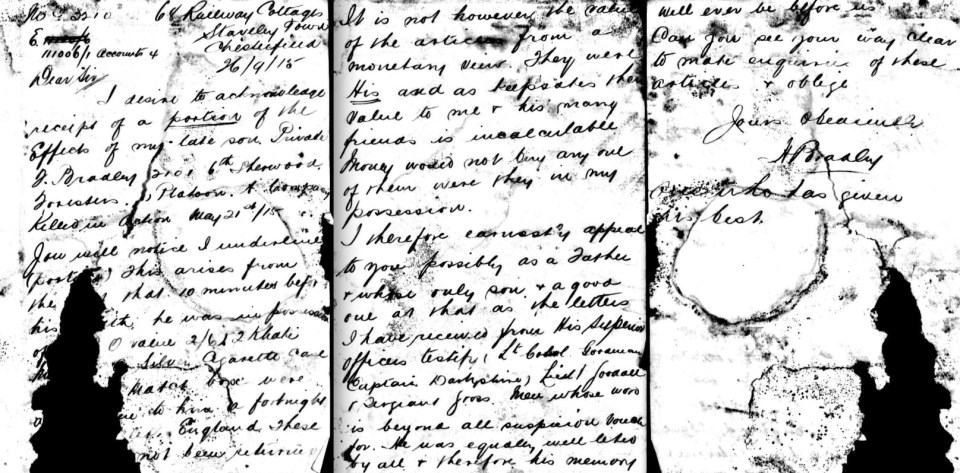 64 Railway Cottages
Staveley Town
Chesterfield
26/9/15
E
111006/1 Accounts 4
Dear Sir
I desire to acknowledge
receipt of a portion of the
Effects of my late son Private
F. Bradley 2101 6th Sherwood
Foresters Platoon A Company
Killed in Action May 21st/15
You will notice I underline
(portion) This arises from
the that 10 minutes before
his he was in possession
value 2/6 & 2 Khaki
Silver Cigarette Case
Match box were
to him a fortnight
England These
not been returned
It is not however the value
of the articles from a
monetary view. They were
His and as keepsakes their
value to me & his many
friends is incalculable
Money would not buy any one
of them were they in my
possession.
I therefore earnestly appeal
to you possibly as a Father
& whose only son & a good
one at that as the letters
I have received from His Superior
officers testify (Lt Colol. Goodman
Captain Darbyshire, Lieut Jordall
& Sergeant Gross. Men whose word
is beyond all suspicion vouch
for. He was equally well liked
by all & therefore his memory
will ever be before us
Can you see your way clear
to make enquiries of these
articles & oblige
Yours Obediently
A Bradley
who has given
his best